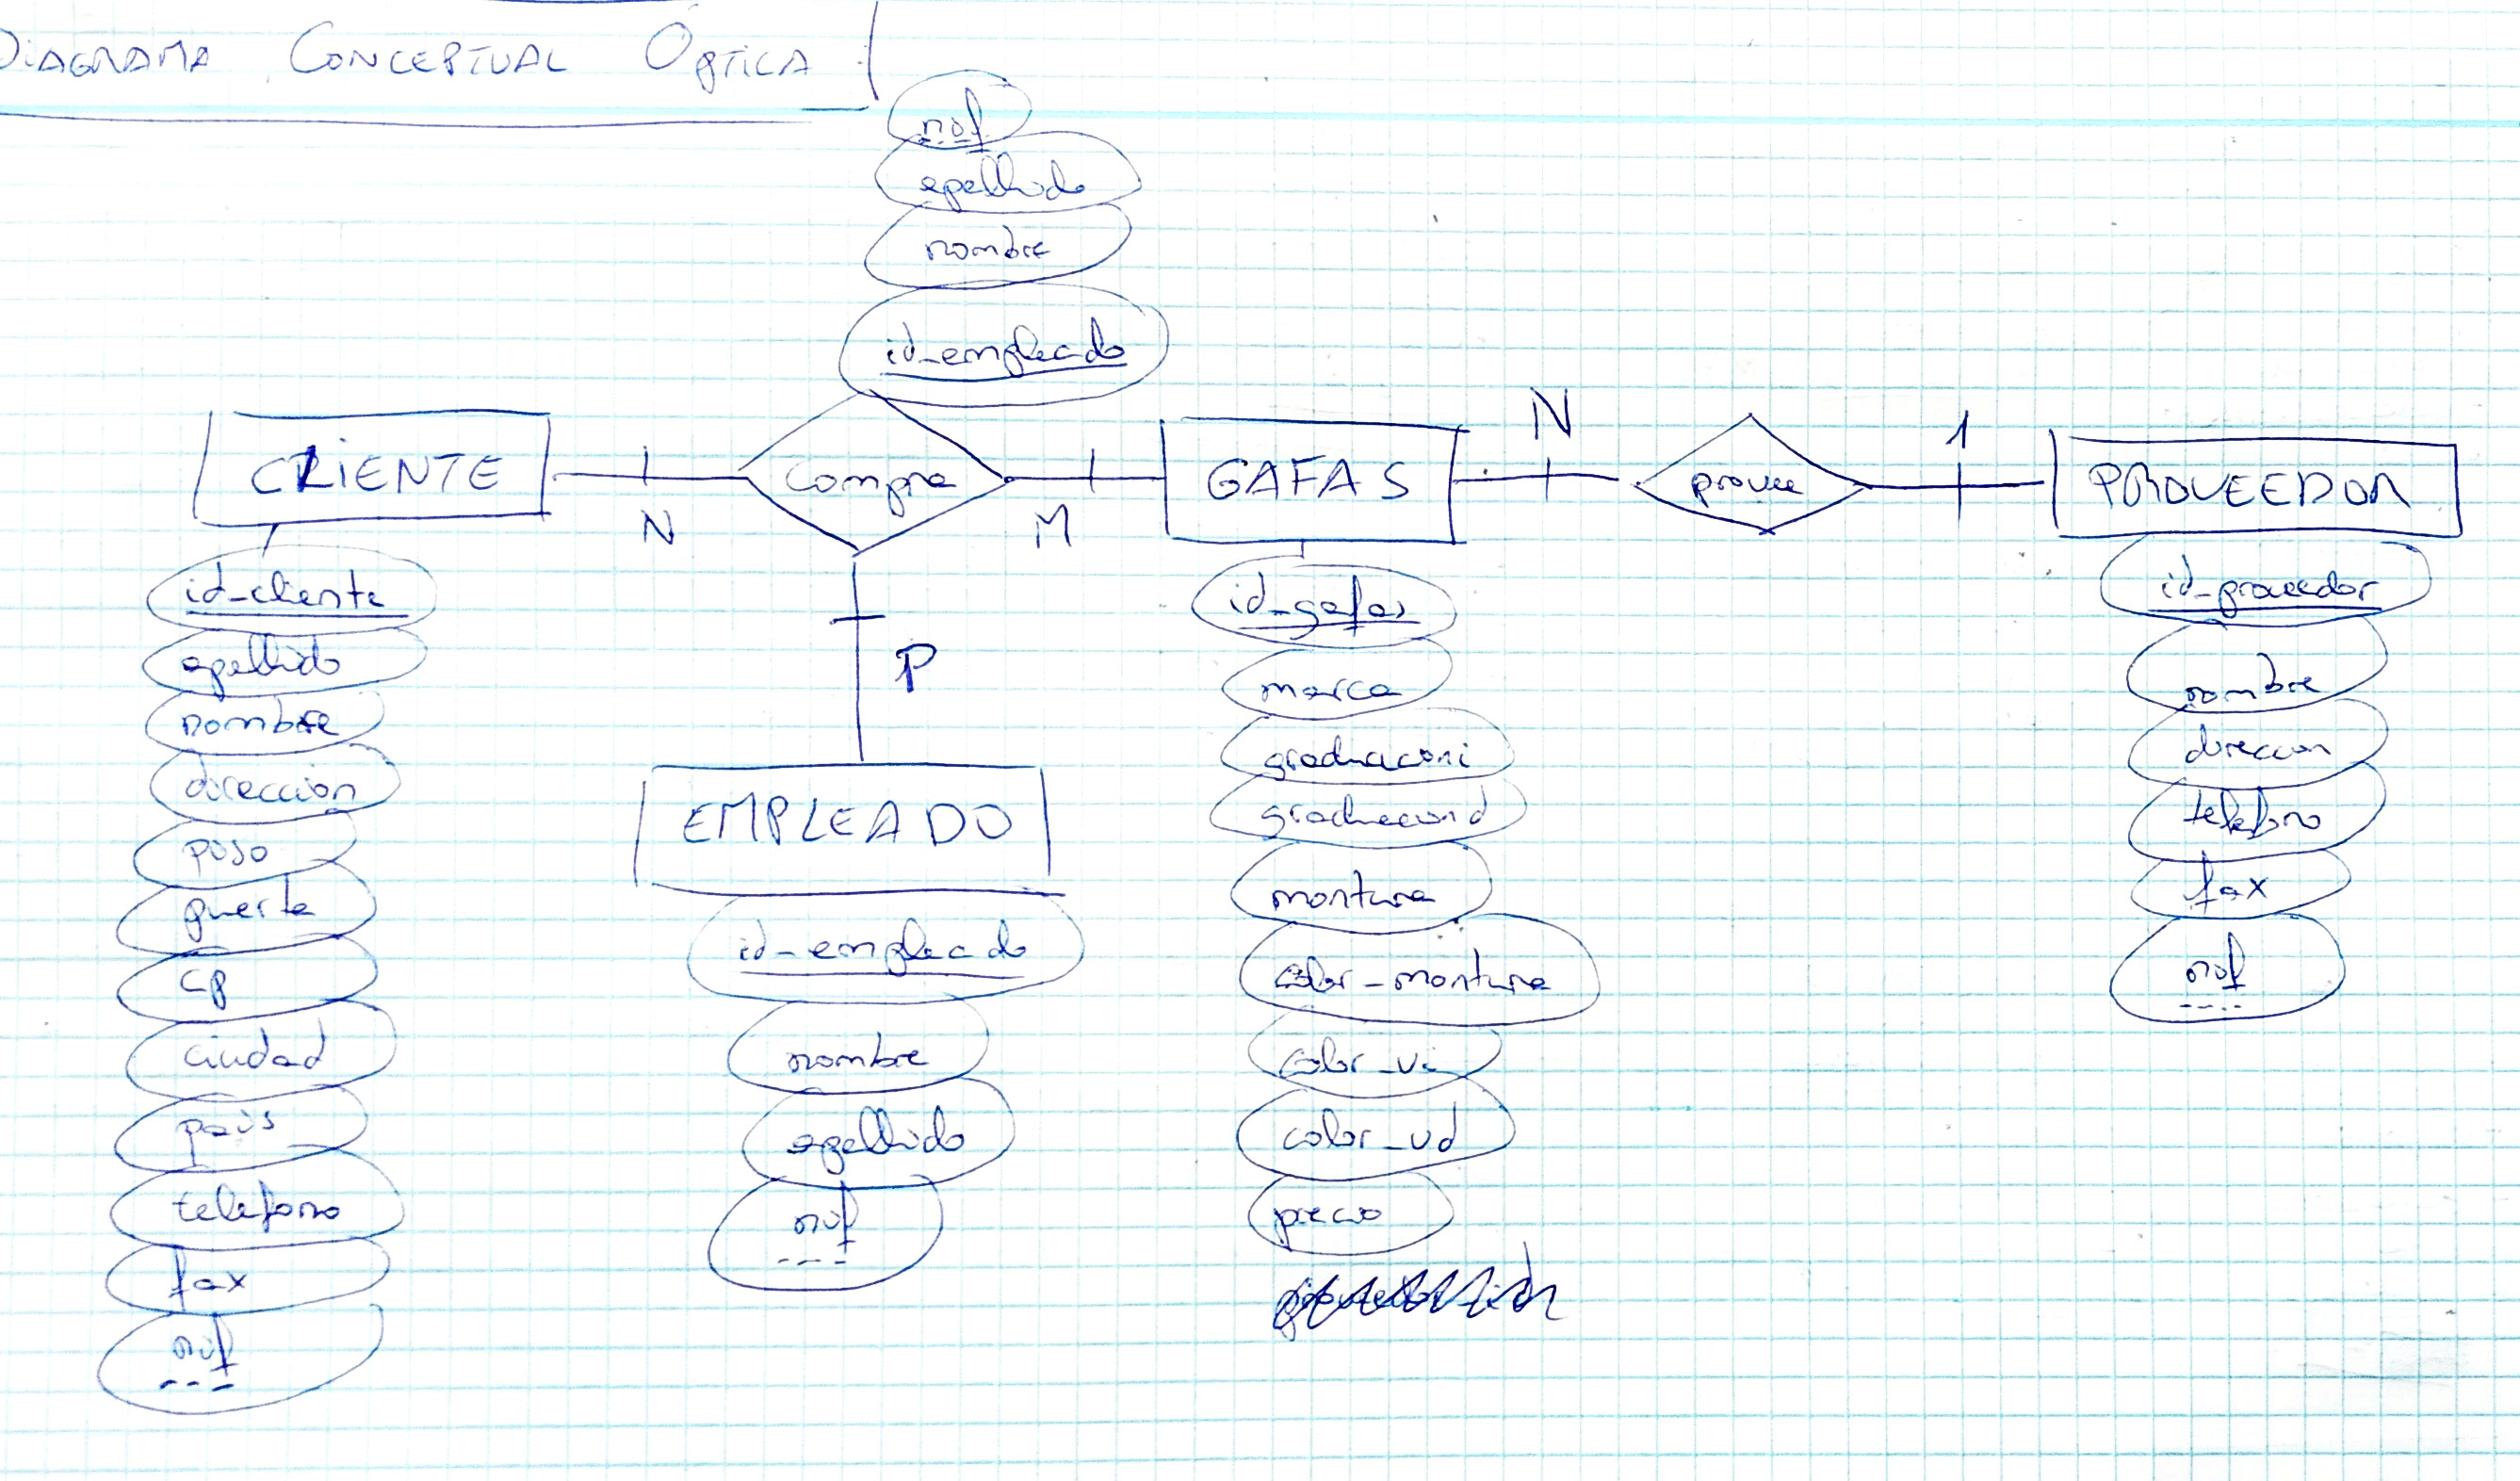 DIAGRAMA CONCEPTUAL OPTICA
nif
apellido
nombre
id_empleado
CLIENTE
N
Compra
M
GAFAS
N
provee
1
PROVEEDOR
id_cliente
apellido
nombre
direccion
piso
puerta
cp
ciudad
pais
telefono
fax
nif
P
EMPLEADO
id_empleado
nombre
apellido
nif
id_gafas
marca
graduacioni
graduaciond
montura
color_montura
color_vi
color_vd
precio
id_proveedor
nombre
direccion
telefono
fax
nif